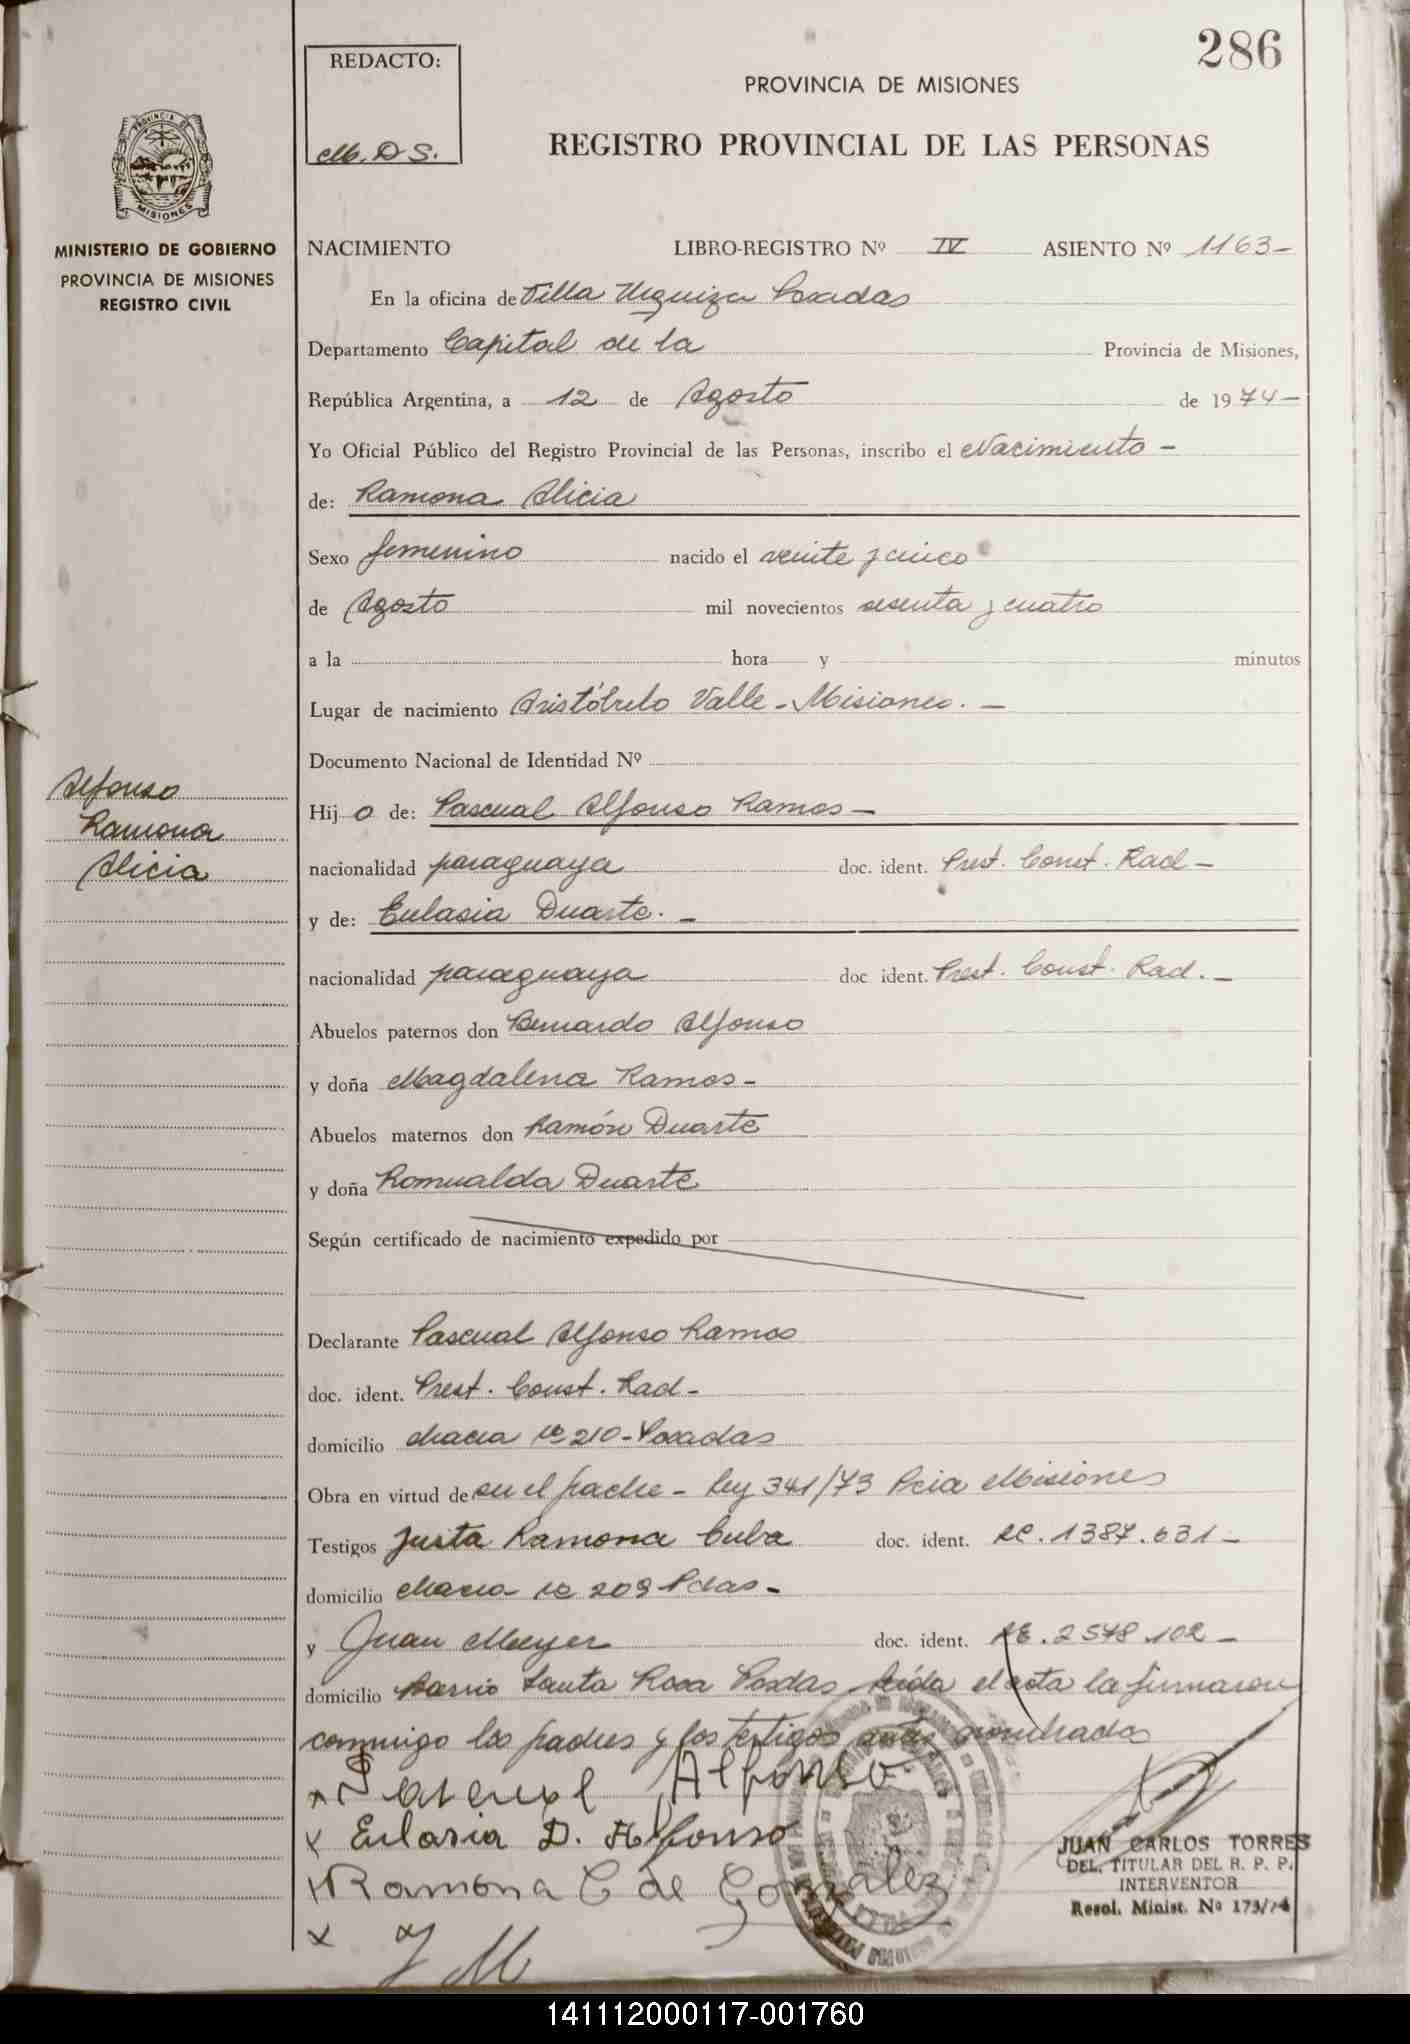 286
REDACTO:
M. D S.
PROVINCIA DE MISIONES
REGISTRO PROVINCIAL DE LAS PERSONAS
PROVINCIA DE
MISIONES
MINISTERIO DE GOBIERNO
PROVINCIA DE MISIONES
REGISTRO CIVIL
NACIMIENTO LIBRO-REGISTRO Nº IV ASIENTO Nº 1163-
En la oficina de Villa Urquiza Posadas
Departamento Capital de la Provincia de Misiones,
República Argentina, a 12 de Agosto de 1974-
Yo Oficial Público del Registro Provincial de las Personas, inscribo el Nacimiento -
de: Ramona Alicia
Sexo femenino nacido el veinte y cinco
de Agosto mil novecientos sesenta y cuatro
a la hora y minutos
Lugar de nacimiento Aristóbulo Valle - Misiones. -
Documento Nacional de Identidad Nº
Alfonso
Ramona
Alicia
Hij o de: Pascual Alfonso Ramos -
nacionalidad paraguaya doc. ident. Prest. Const. Rad -
y de: Eulasia Duarte. -
nacionalidad paraguaya doc ident. Prest. Const. Rad. -
Abuelos paternos don Bernardo Alfonso
y doña Magdalena Ramos -
Abuelos maternos don Ramón Duarte
y doña Romualda Duarte
Según certificado de nacimiento expedido por
Declarante Pascual Alfonso Ramos
doc. ident. Prest. Const. Rad -
domicilio chacra 210 - Posadas
Obra en virtud de ser el padre - Ley 341/73 Pcia Misiones
Testigos Justa Ramona Cuba doc. ident. 1387.631 -
domicilio chacra 209 Pdas -
y Juan Meyer doc. ident. 2578.102 -
domicilio Barrio Santa Rosa Posdas. Leída el acta la firmaron
conmigo los padres y los testigos
x Pascual Alfonso
x Eularia D. Alfonso
x Ramona C de Gonzalez
x J M
JUAN CARLOS TORRES
DEL. TITULAR DEL R. P. P.
INTERVENTOR
Resol. Minist. Nº 173/74
141112000117-001760